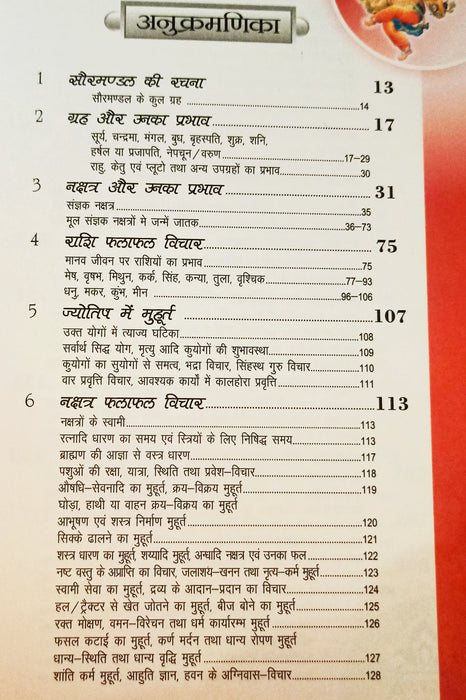 अनुक्रमणिका
1 सौरमण्डल की रचना 13
सौरमण्डल के कुल ग्रह ........ 14
2 ग्रह और उनका प्रभाव ........ 17
सूर्य, चन्द्रमा, मंगल, बुध, बृहस्पति, शुक्र, शनि,
हर्षल या प्रजापति, नेपचून/वरुण ........ 17–29
राहु, केतु एवं प्लूटो तथा अन्य उपग्रहों का प्रभाव ........ 30
3 नक्षत्र और उनका प्रभाव ........ 31
संज्ञक नक्षत्र ........ 35
मूल संज्ञक नक्षत्रों मे जन्में जातक ........ 36–73
4 राशि फलाफल विचार ........ 75
मानव जीवन पर राशियों का प्रभाव ........ 75
मेष, वृषभ, मिथुन, कर्क, सिंह, कन्या, तुला, वृश्चिक ........ 77–93
धनु, मकर, कुंभ, मीन ........ 96–106
5 ज्योतिष में मुहूर्त ........ 107
उक्त योगों में त्याज्य घटिका ........ 108
सर्वार्थ सिद्ध योग, मृत्यु आदि कुयोगों की शुभावस्था ........ 109
कुयोगों का सुयोगों से समत्व, भद्रा विचार, सिंहस्थ गुरु विचार ........ 110
वार प्रवृत्ति विचार, आवश्यक कार्यों में कालहोरा प्रवृत्ति ........ 111
6 नक्षत्र फलाफल विचार ........ 113
नक्षत्रों के स्वामी ........ 113
रत्नादि धारण का समय एवं स्त्रियों के लिए निषिद्ध समय ........ 113
ब्राह्मण की आज्ञा से वस्त्र धारण ........ 117
पशुओं की रक्षा, यात्रा, स्थिति तथा प्रवेश–विचार ........ 118
औषधि–सेवनादि का मुहूर्त, क्रय–विक्रय मुहूर्त ........ 119
घोड़ा, हाथी या वाहन क्रय–विक्रय का मुहूर्त
आभूषण एवं शस्त्र निर्माण मुहूर्त ........ 120
सिक्के ढालने का मुहूर्त ........ 121
शस्त्र धारण का मुहूर्त, शय्यादि मुहूर्त, अन्धादि नक्षत्र एवं उनका फल ........ 122
नष्ट वस्तु के अप्राप्ति का विचार, जलाशय–खनन तथा नृत्य–कर्म मुहूर्त ........ 123
स्वामी सेवा का मुहूर्त, द्रव्य के आदान–प्रदान का विचार ........ 124
हल/ट्रैक्टर से खेत जोतने का मुहूर्त, बीज बोने का मुहूर्त ........ 125
रक्त मोक्षण, वमन–विरेचन तथा धर्म कार्यारम्भ मुहूर्त ........ 126
फसल कटाई का मुहूर्त, कर्ण मर्दन तथा धान्य रोपण मुहूर्त
धान्य–स्थिति तथा धान्य वृद्धि मुहूर्त ........ 127
शांति कर्म मुहूर्त, आहुति ज्ञान, हवन के अग्निवास–विचार ........ 128